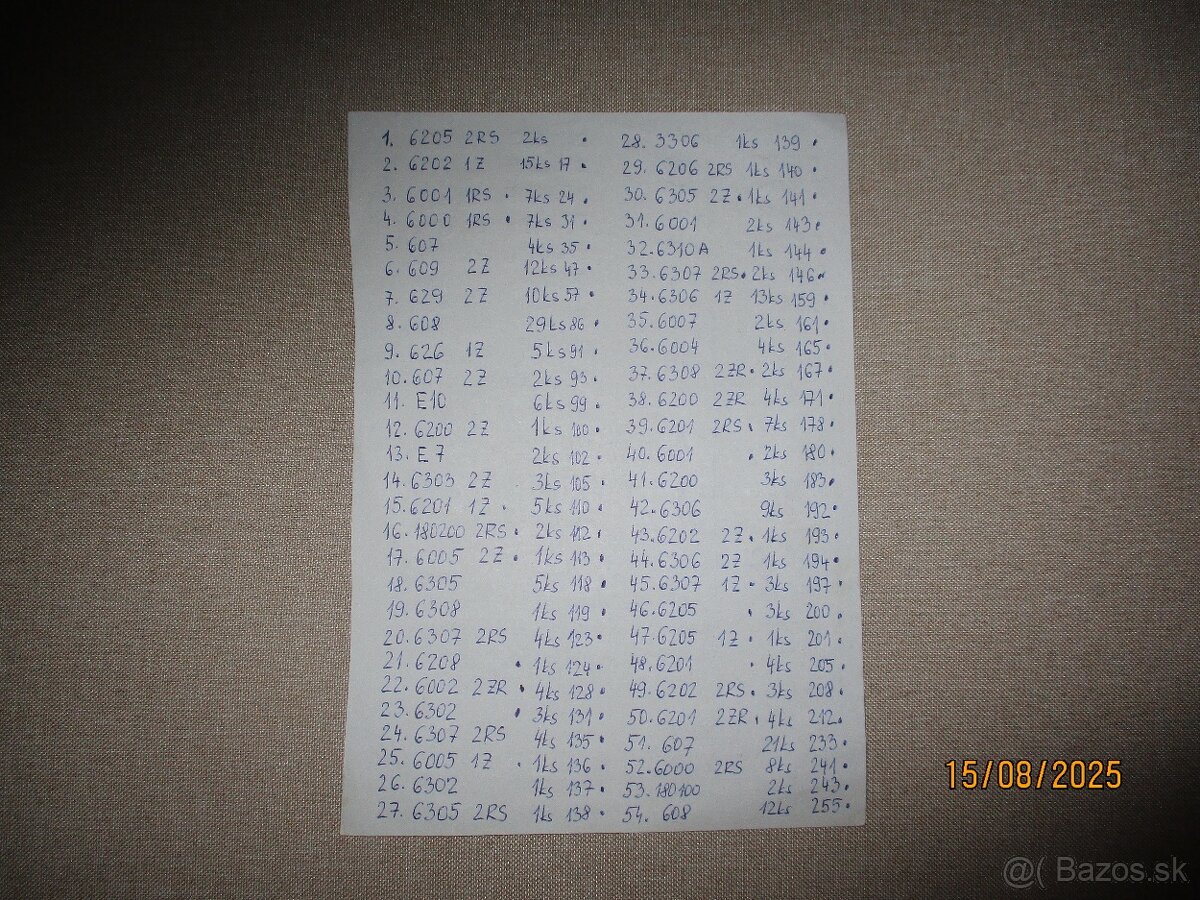 1. 6205 2RS 2ks .
2. 6202 1Z 15ks 17 .
3. 6001 1RS . 7ks 24 .
4. 6000 1RS . 7ks 31 .
5. 607 4ks 35 .
6. 609 2Z 12ks 47 .
7. 629 2Z 10ks 57 .
8. 608 29ks 86 .
9. 626 1Z 5ks 91 .
10. 607 2Z 2ks 93 .
11. E10 6ks 99 .
12. 6200 2Z 1ks 100 .
13. E7 2ks 102 .
14. 6303 2Z . 3ks 105 .
15. 6201 1Z . 5ks 110 .
16. 180200 2RS . 2ks 112 .
17. 6005 2Z . 1ks 113 .
18. 6305 5ks 118 .
19. 6308 1ks 119 .
20. 6307 2RS 4ks 123 .
21. 6208 . 1ks 124 .
22. 6002 2ZR . 4ks 128 .
23. 6302 . 3ks 131 .
24. 6307 2RS 4ks 135 .
25. 6005 1Z . 1ks 136 .
26. 6302 1ks 137 .
27. 6305 2RS 1ks 138 .
28. 3306 1ks 139 .
29. 6206 2RS 1ks 140 .
30. 6305 2Z . 1ks 141 .
31. 6001 2ks 143 .
32. 6310A 1ks 144 .
33. 6307 2RS . 2ks 146 .
34. 6306 1Z 13ks 159 .
35. 6007 2ks 161 .
36. 6004 4ks 165 .
37. 6308 2ZR . 2ks 167 .
38. 6200 2ZR 4ks 171 .
39. 6201 2RS . 7ks 178 .
40. 6001 . 2ks 180 .
41. 6200 3ks 183 .
42. 6306 9ks 192 .
43. 6202 2Z . 1ks 193 .
44. 6306 2Z 1ks 194 .
45. 6307 1Z . 3ks 197 .
46. 6205 . 3ks 200 .
47. 6205 1Z . 1ks 201 .
48. 6201 . 4ks 205 .
49. 6202 2RS . 3ks 208 .
50. 6201 2ZR . 4ks 212 .
51. 607 21ks 233 .
52. 6000 2RS 8ks 241 .
53. 180100 2ks 243 .
54. 608 12ks 255 .
15/08/2025
@( Bazos.sk